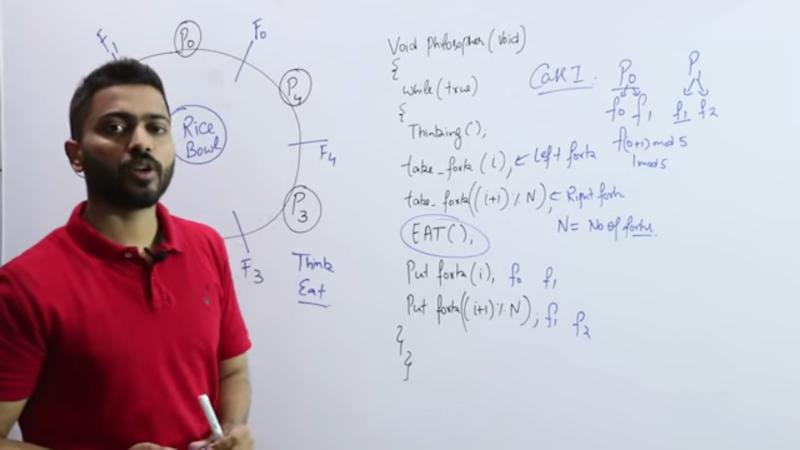 F
P0
F0
P4
Rice
Bowl
F4
P3
F3
Think
Eat
Void philosopher(void)
{
while(true)
{
Thinking();
take_fork(i); ← Left fork
take_fork((i+1)%N); ← Right fork
N= No of forks.
EAT();
Put fork(i); f0 f1
Put fork((i+1)%N); f1 f2
}
}
Case I. P0 P
f0 f1 f1 f2
f(0+1) mod 5
1 mod 5